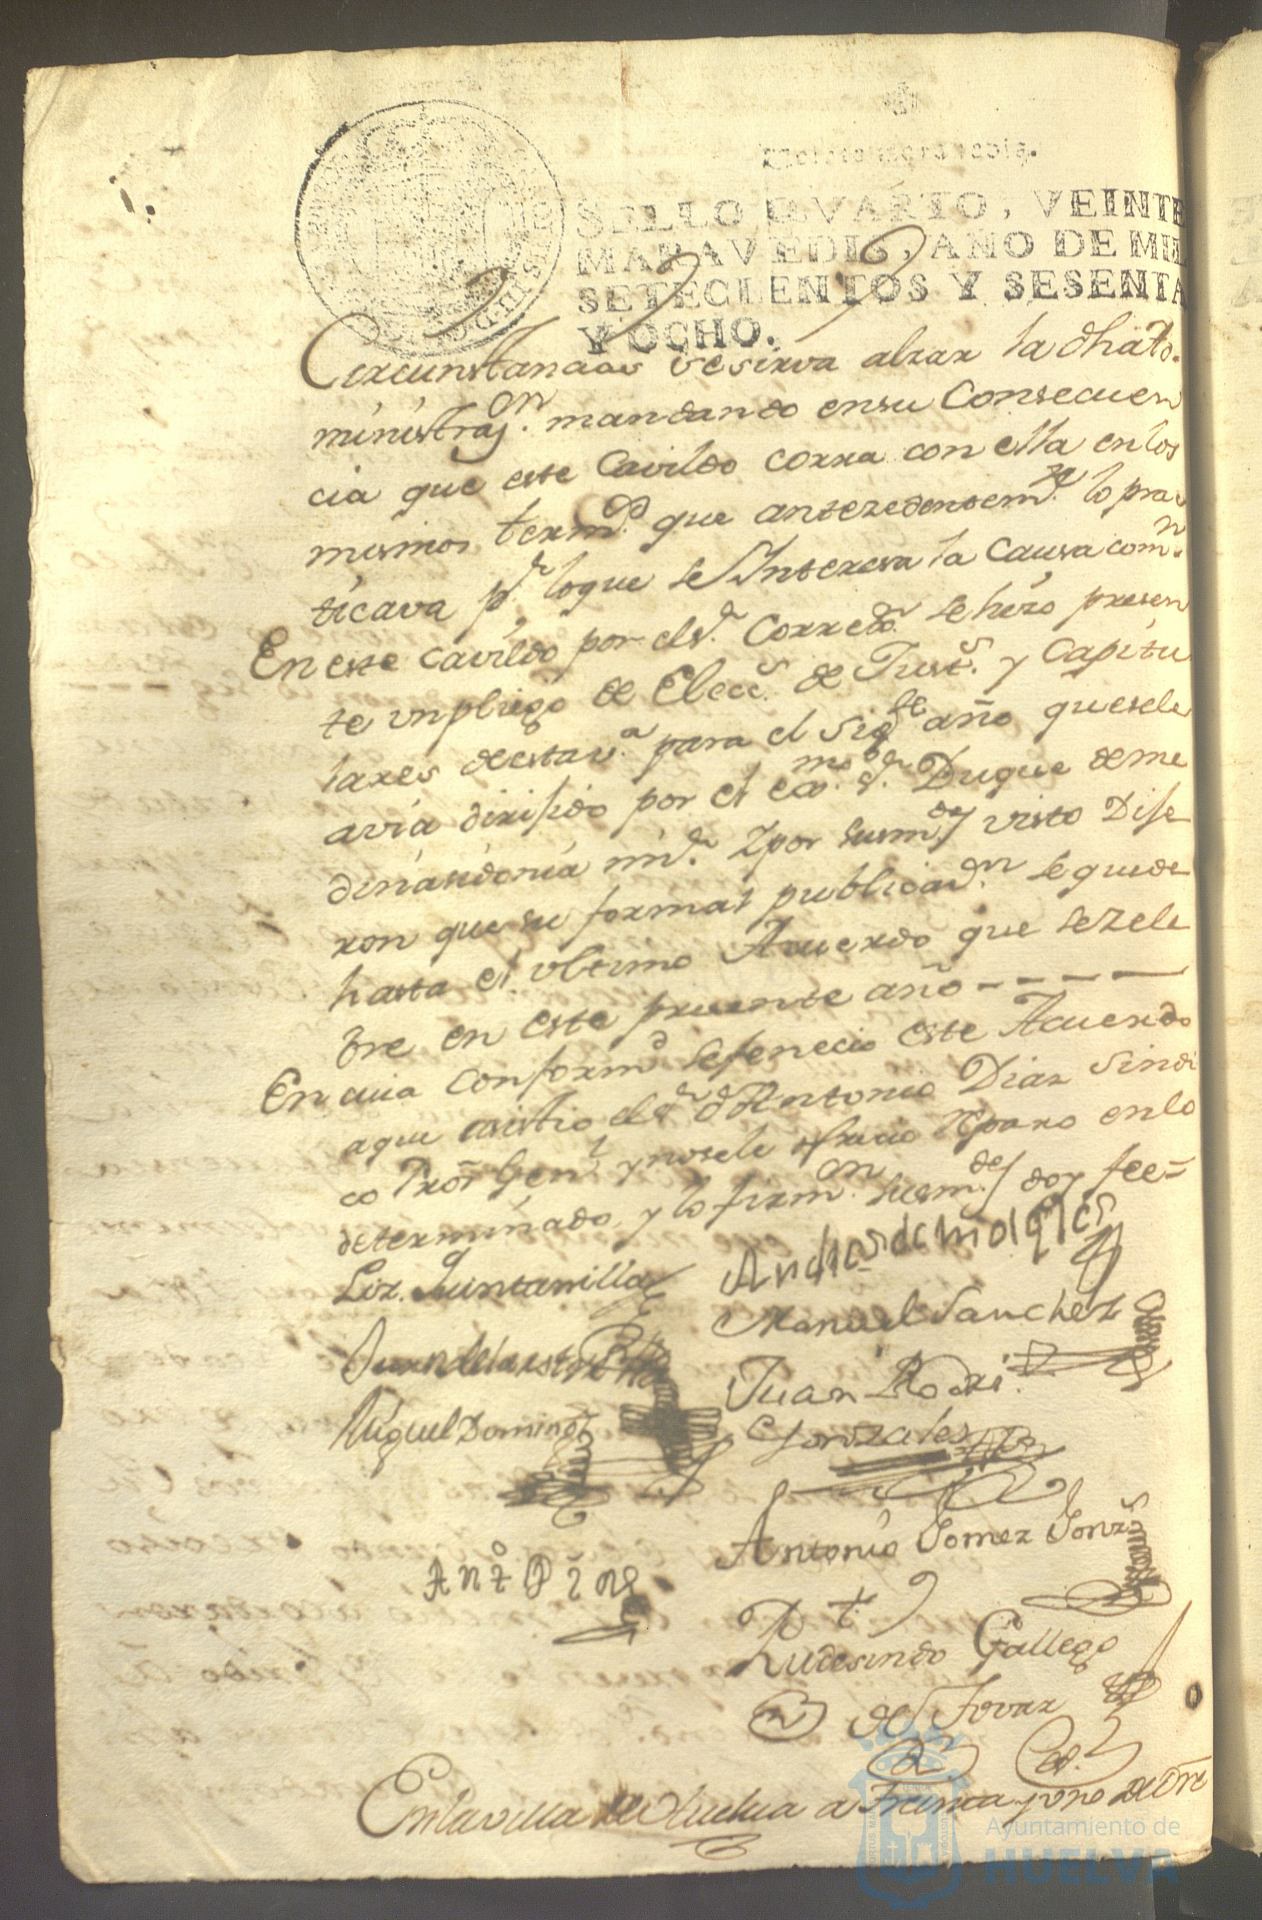 Veinte maravedis.
SELLO QVARTO, VEINTE
MARAVEDIS, AÑO DE MIL
SETECIENTOS Y SESENTA
Y OCHO.
Circunstancias se sirva alzar la dha Ato.
ministraz.on mandando ensu Consecuen
cia que este Cavildo corra con ella enlos
mismos termos. que antezedentemte. lo prac
ticava pr. loque se Interesa la Causa comn.
En este cavildo por el sr. Corredor. se hizo presen
te vn pliego de Elecs. de Justs. y Capitu
lares de esta va. para el sigte año que se le
avia dirijido por el exmo. sr. Duque de me
dinasidonia mi sr. Y por susmdes visto Dije
ron que su formal publicadn. se quede
hasta el vltimo Acuerdo que se zele
bre en este presente año - - - -
En cuia conformd se fenecio este Acuerdo
a que asistio el sr. dn Antonio Diaz Sindi
co Pror Genl. y no se le ofrecio reparo en lo
determinado, y lo firmon. susmdes doy fee=
Liz. Quintanilla
Manuel Sanchez
Miguel Doming
Juan Rodri.
Gonzales
Antonio Gomez Gonzs
Rudesindo Gallego
de Tovar
En la villa de Huelva a treinta y uno de Dre
Ayuntamiento de
HUELVA